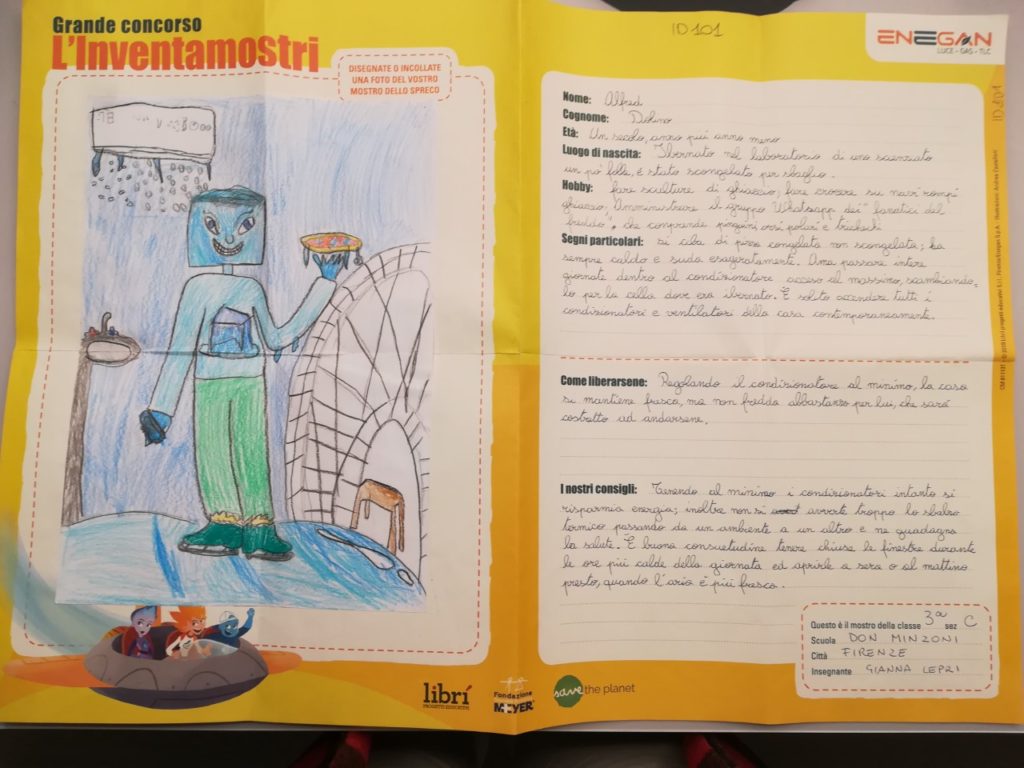 Grande concorso
L'Inventamostri
DISEGNATE O INCOLLATE
UNA FOTO DEL VOSTRO
MOSTRO DELLO SPRECO
ID 101
ENEGAN
LUCE - GAS - TLC
ID 101
Nome: Alfred
Cognome: Dolino
Età: Un secolo, anno più anno meno
Luogo di nascita: Ibernato nel laboratorio di uno scienziato
un po' folle, è stato scongelato per sbaglio.
Hobby: fare sculture di ghiaccio; fare crociere su navi rompi
ghiaccio; Amministrare il gruppo Whatsapp dei "fanatici del
freddo", che comprende pinguini orsi polari e trichechi
Segni particolari: si ciba di pizza congelata non scongelata; ha
sempre caldo e suda esageratamente. Ama passare intere
giornate dentro al condizionatore acceso al massimo, scambiando-
lo per la cella dove era ibernato. È solito accendere tutti i
condizionatori e ventilatori della casa contemporaneamente.
Come liberarsene: Regolando il condizionatore al minimo, la casa
si mantiene fresca, ma non fredda abbastanza per lui, che sarà
costretto ad andarsene.
I nostri consigli: Tenendo al minimo i condizionatori intanto si
risparmia energia; inoltre non si avverte troppo lo sbalzo
termico passando da un ambiente a un altro e ne guadagna
la salute. È buona consuetudine tenere chiuse le finestre durante
le ore più calde della giornata ed aprirle a sera o al mattino
presto, quando l'aria è più fresca.
Questo è il mostro della classe 3ª sez C
Scuola DON MINZONI
Città FIRENZE
Insegnante GIANNA LEPRI
librí
PROGETTI EDUCATIVI
Fondazione
MEYER
save the planet